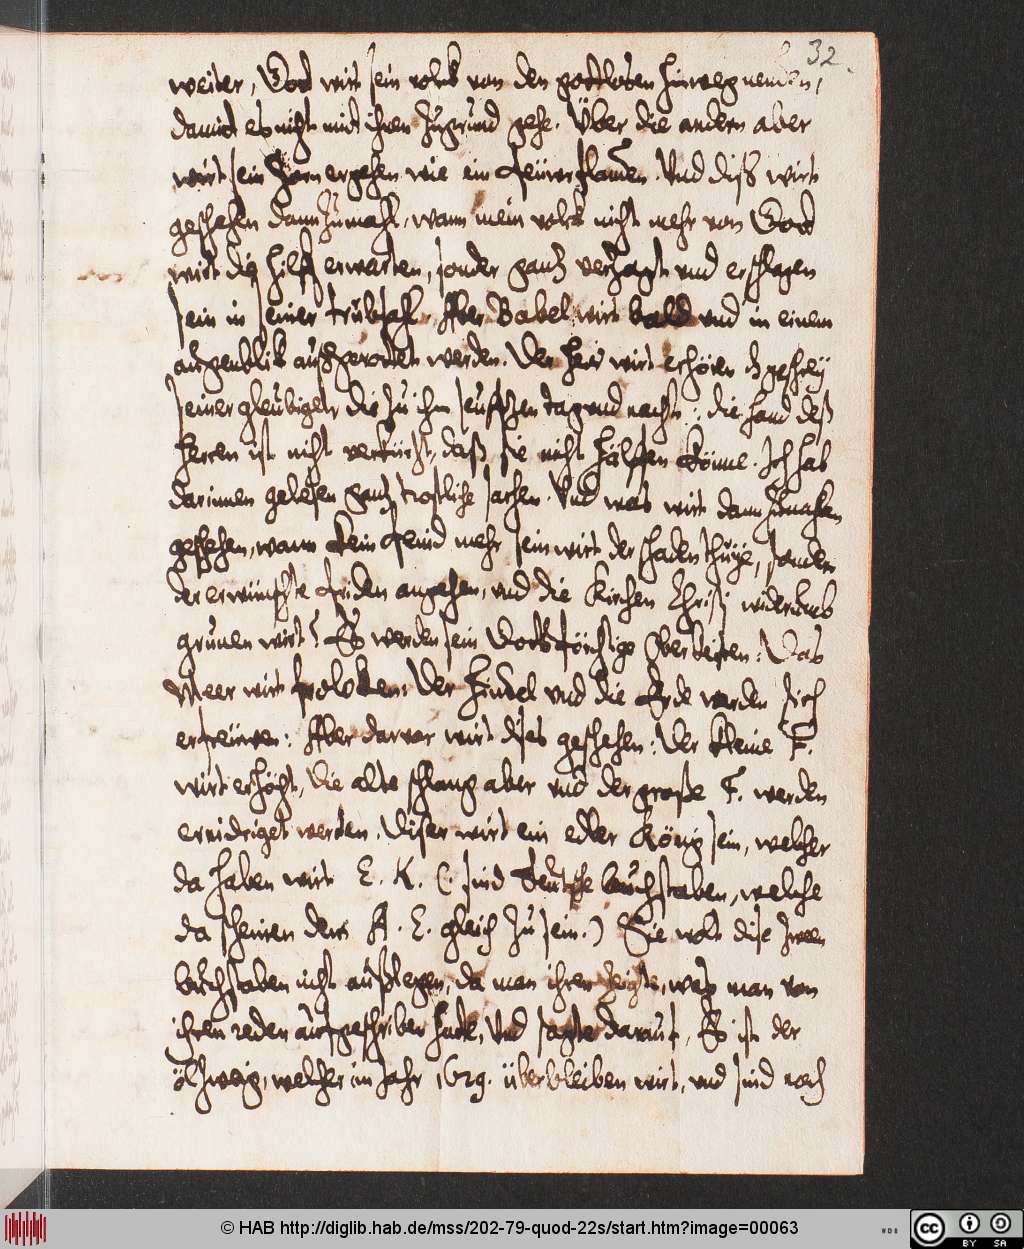 32.
weiter, Gott wirt sein volck von den gottlosen hinweg nemen,
damit es nicht mit ihnen zugrund gehe. Über die andern aber
wirt sein Zorn ergehen wie ein feüwrflamen. Und diß wirt
geschehen dann zumahl, wann mein volck nicht mehr von Gott
wirt die hilff erwarten, sonder gantz verzagt und erschlagen
sein in seiner trübsahl. Aber Babel wirt bald und in einem
augenblick außgerottet werden. Der Herr wirt erhören dz geschreÿ
seiner gleubigen, die zu ihm seuffzen tag und nacht: die hand deß
Herren ist nicht verkürtzt, daß sie nicht hälffen könne. Ich hab
darinnen gelesen gantz trostliche sachen. Und was wirt dann hernachen
geschehen, wann kein feind mehr sein wirt der schaden thüÿe, sondern
der erwünschte friden angehen, und die Kirchen Christi widerumb
grunen wirt? Es werden sein Gottsförchtige Oberkeiten: Das
Meer wirt froloken: Der Himel und die Erde werden sich
erfreüwen: Aber darvor wirt dises geschehen: Der kleine F.
wirt erhöcht, die alte schlang aber und der große F. werden
ernidriget werden. Diser wirt ein edler König sein, welcher
da haben wirt E. K. (: sind Teutsche buchstaben, welche
da scheinen dem A. E. gleich zu sein.) Sie wolt dise zween
buchstaben nicht außlegen, da man ihren zeigte, was man von
ihren reden aufgeschriben hatte, Und sagte darauf, Es ist der
ölzweig, welcher im Jahr 1629. überbleiben wirt, und sind noch
© HAB http://diglib.hab.de/mss/202-79-quod-22s/start.htm?image=00063
WDB
cc BY SA